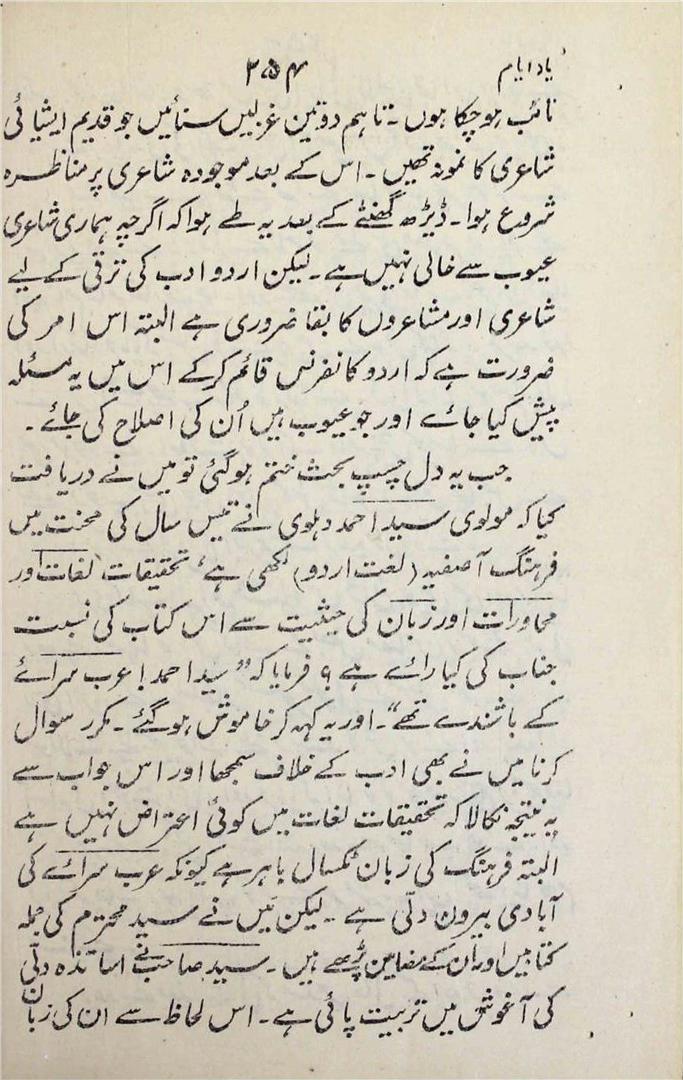 یاد ایام
۲۵۴
تائب ہوچکا ہوں۔ تاہم دوتین غزلیں سنائیں جو قدیم ایشیائی
شاعری کا نمونہ تھیں۔ اس کے بعد موجودہ شاعری پر مناظرہ
شروع ہوا۔ ڈیڑھ گھنٹے کے بعد یہ طے ہوا کہ اگرچہ ہماری شاعری
عیوب سے خالی نہیں ہے۔ لیکن اردو ادب کی ترقی کے لیے
شاعری اور مشاعروں کا بقا ضروری ہے البتہ اس امر کی
ضرورت ہے کہ اردو کانفرنس قائم کرکے اس میں یہ مسئلہ
پیش کیا جائے اور جو عیوب ہیں اُن کی اصلاح کی جائے۔
جب یہ دل چسپ بحث ختم ہوگئی تو میں نے دریافت
کیا کہ مولوی سید احمد دہلوی نے تیس سال کی محنت میں
فرہنگ آصفیہ (لغت اردو) لکھی ہے، تحقیقات لغات اور
محاورات اور زبان کی حیثیت سے اس کتاب کی نسبت
جناب کی کیا رائے ہے؟ فرمایا کہ ”سید احمد! عرب سرائے
کے باشندے تھے“۔ اور یہ کہہ کر خاموش ہوگئے۔ مکرر سوال
کرنا میں نے بھی ادب کے خلاف سمجھا اور اس جواب سے
یہ نتیجہ نکالا کہ تحقیقات لغات میں کوئی اعتراض نہیں ہے
البتہ فرہنگ کی زبان ٹکسال باہر ہے کیونکہ عرب سرائے کی
آبادی بیرون دلّی ہے۔ لیکن میں نے سید محترم کی جملہ
کتابیں اور اُن کے مضامین پڑھے ہیں۔ سید صاحب نے اساتذہ دلّی
کی آغوش میں تربیت پائی ہے۔ اس لحاظ سے ان کی زبان